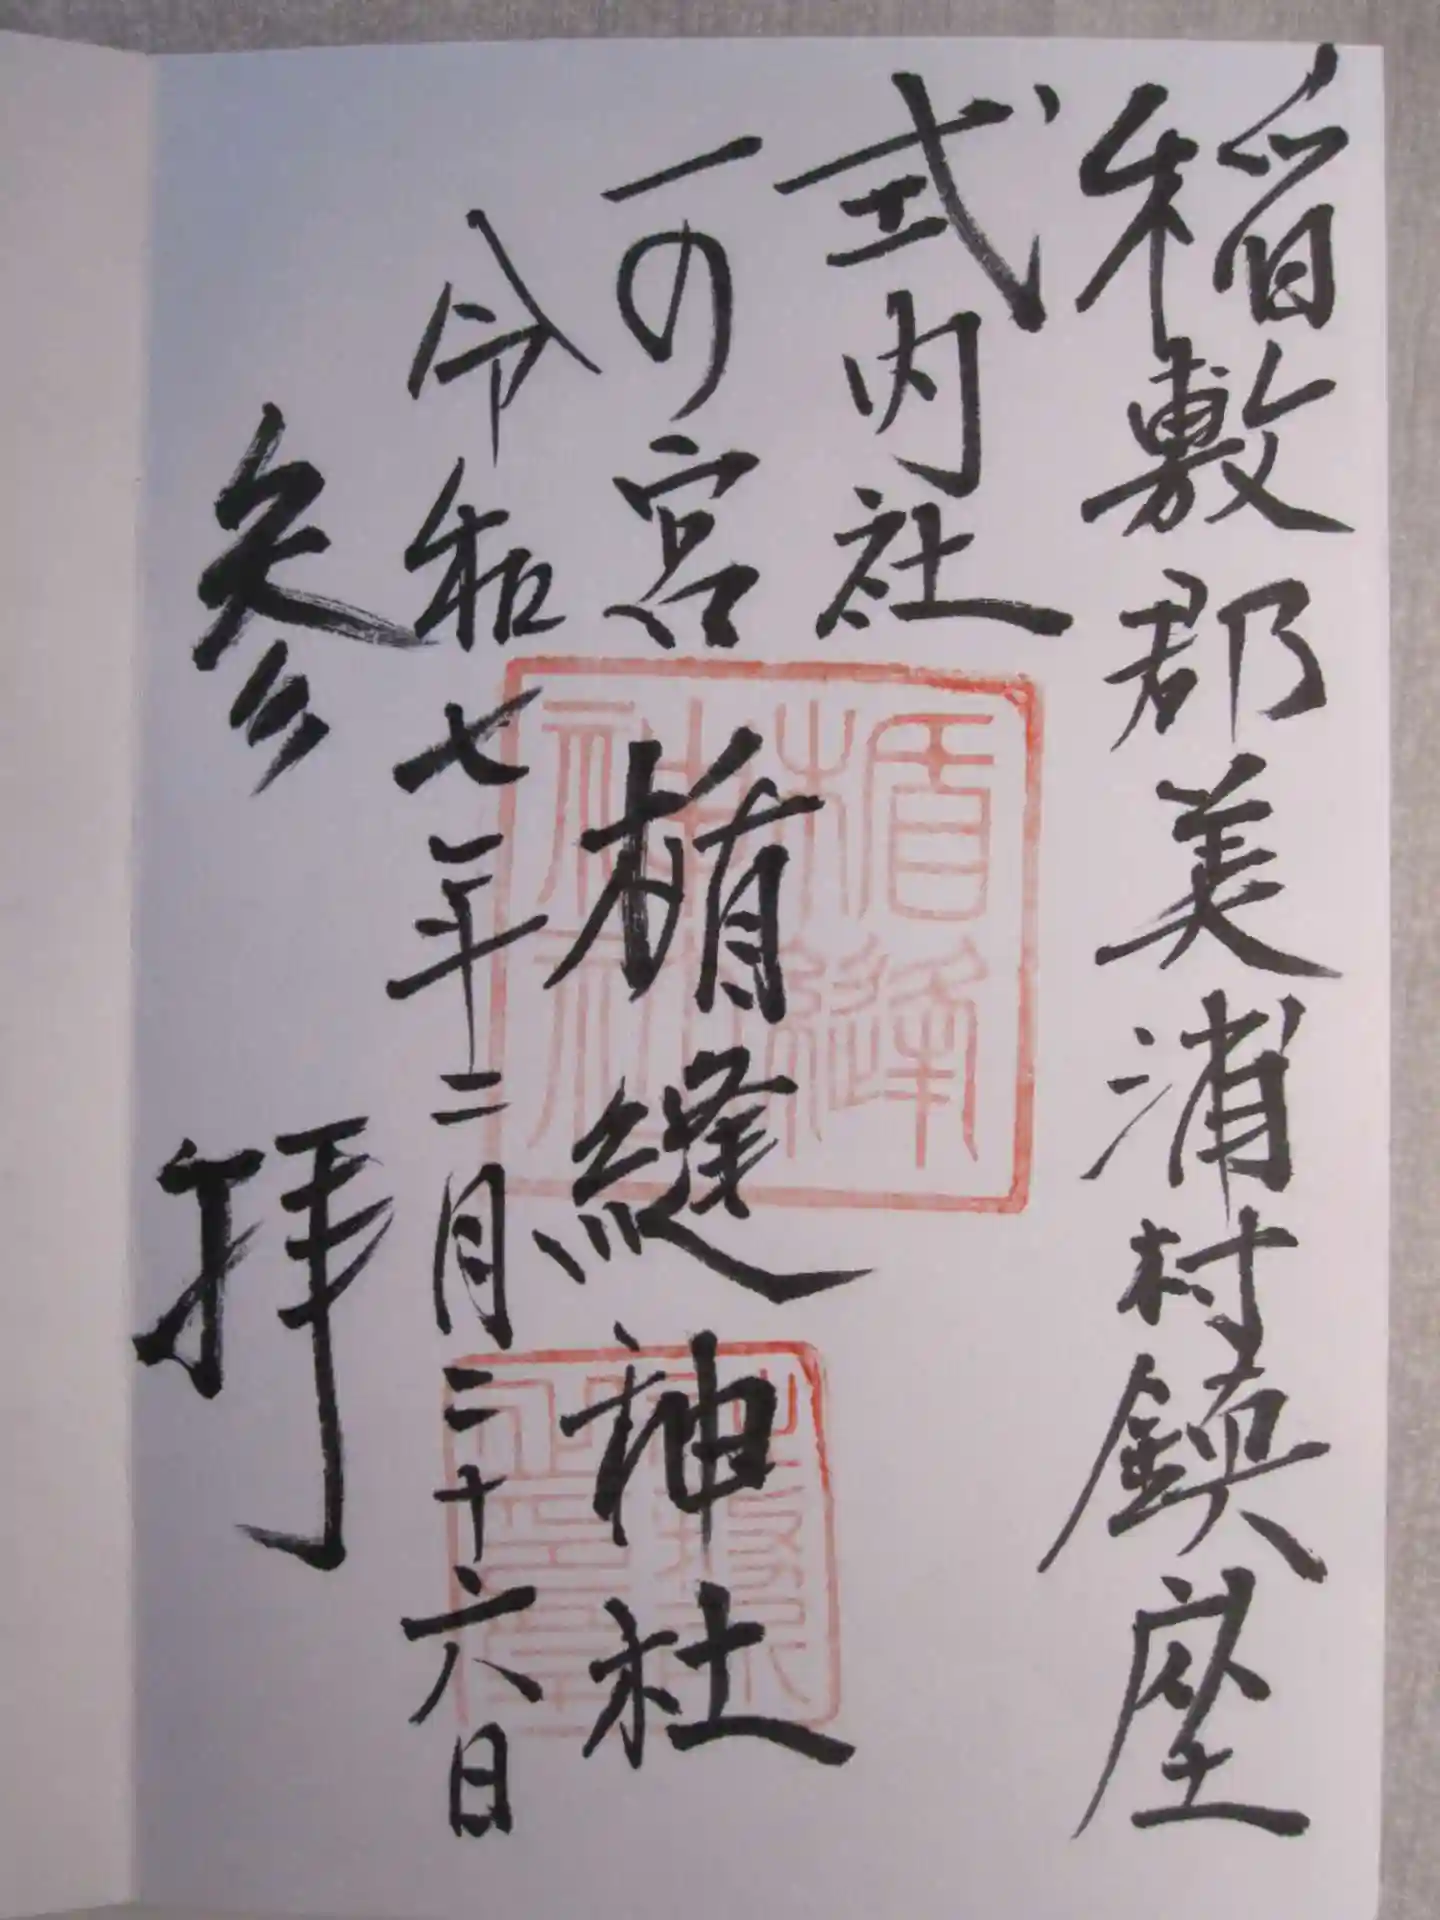 稲敷郡美浦村鎮座
式内社
一の宮
楯縫神社
令和七年二月二十六日
参拝
楯縫神社